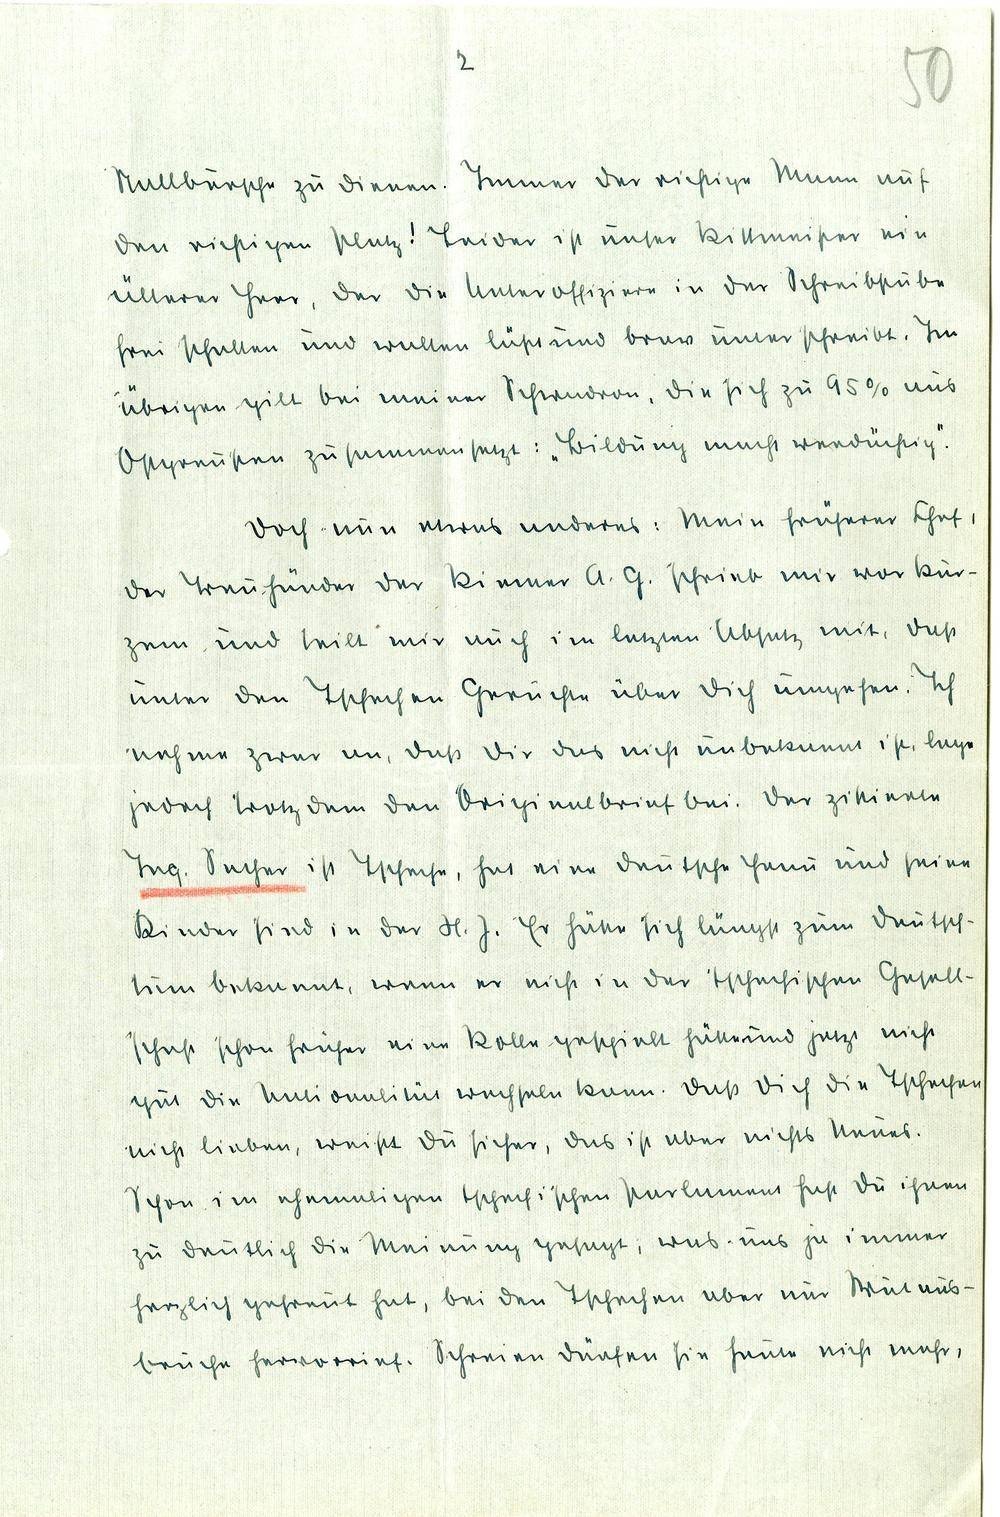 2
50
Stallbursche zu dienen. Immer der richtige Mann auf
den richtigen Platz! Leider ist unser Rittmeister ein
älterer Herr, der die Unteroffiziere in der Schreibstube
frei schalten und walten läßt und brav unterschreibt. Im
übrigen gilt bei meiner Schwadron, die sich zu 95% aus
Ostpreußen zusammensetzt: „Bildung macht verdächtig".
Doch nun etwas anderes: Mein früherer Chef,
der Treuhänder der A. G. schrieb mir vor kur-
zem und teilt mir auch im letzten Absatz mit, daß
unter den Tschechen Gerüchte über Dich umgehen. Ich
nehme zwar an, daß Dir das nicht unbekannt ist, lege
jedoch trotzdem den Originalbrief bei. Der zitierte
Ing. Sucher ist Tscheche, hat eine deutsche Frau und seine
Kinder sind in der H. J. Er hätte sich längst zum Deutsch-
tum bekannt, wenn er nicht in der tschechischen Gesell-
schaft schon früher eine Rolle gespielt hätte und jetzt nicht
gut die Nationalität wechseln kann. Daß Dich die Tschechen
nicht lieben, weißt Du sicher, das ist aber nichts Neues.
Schon im ehemaligen tschechischen Parlament hast Du ihnen
zu deutlich die Meinung gesagt, was uns ja immer
herzlich gefreut hat, bei den Tschechen aber nur Wutaus-
brüche hervorrief. Schreien dürfen sie heute nicht mehr,